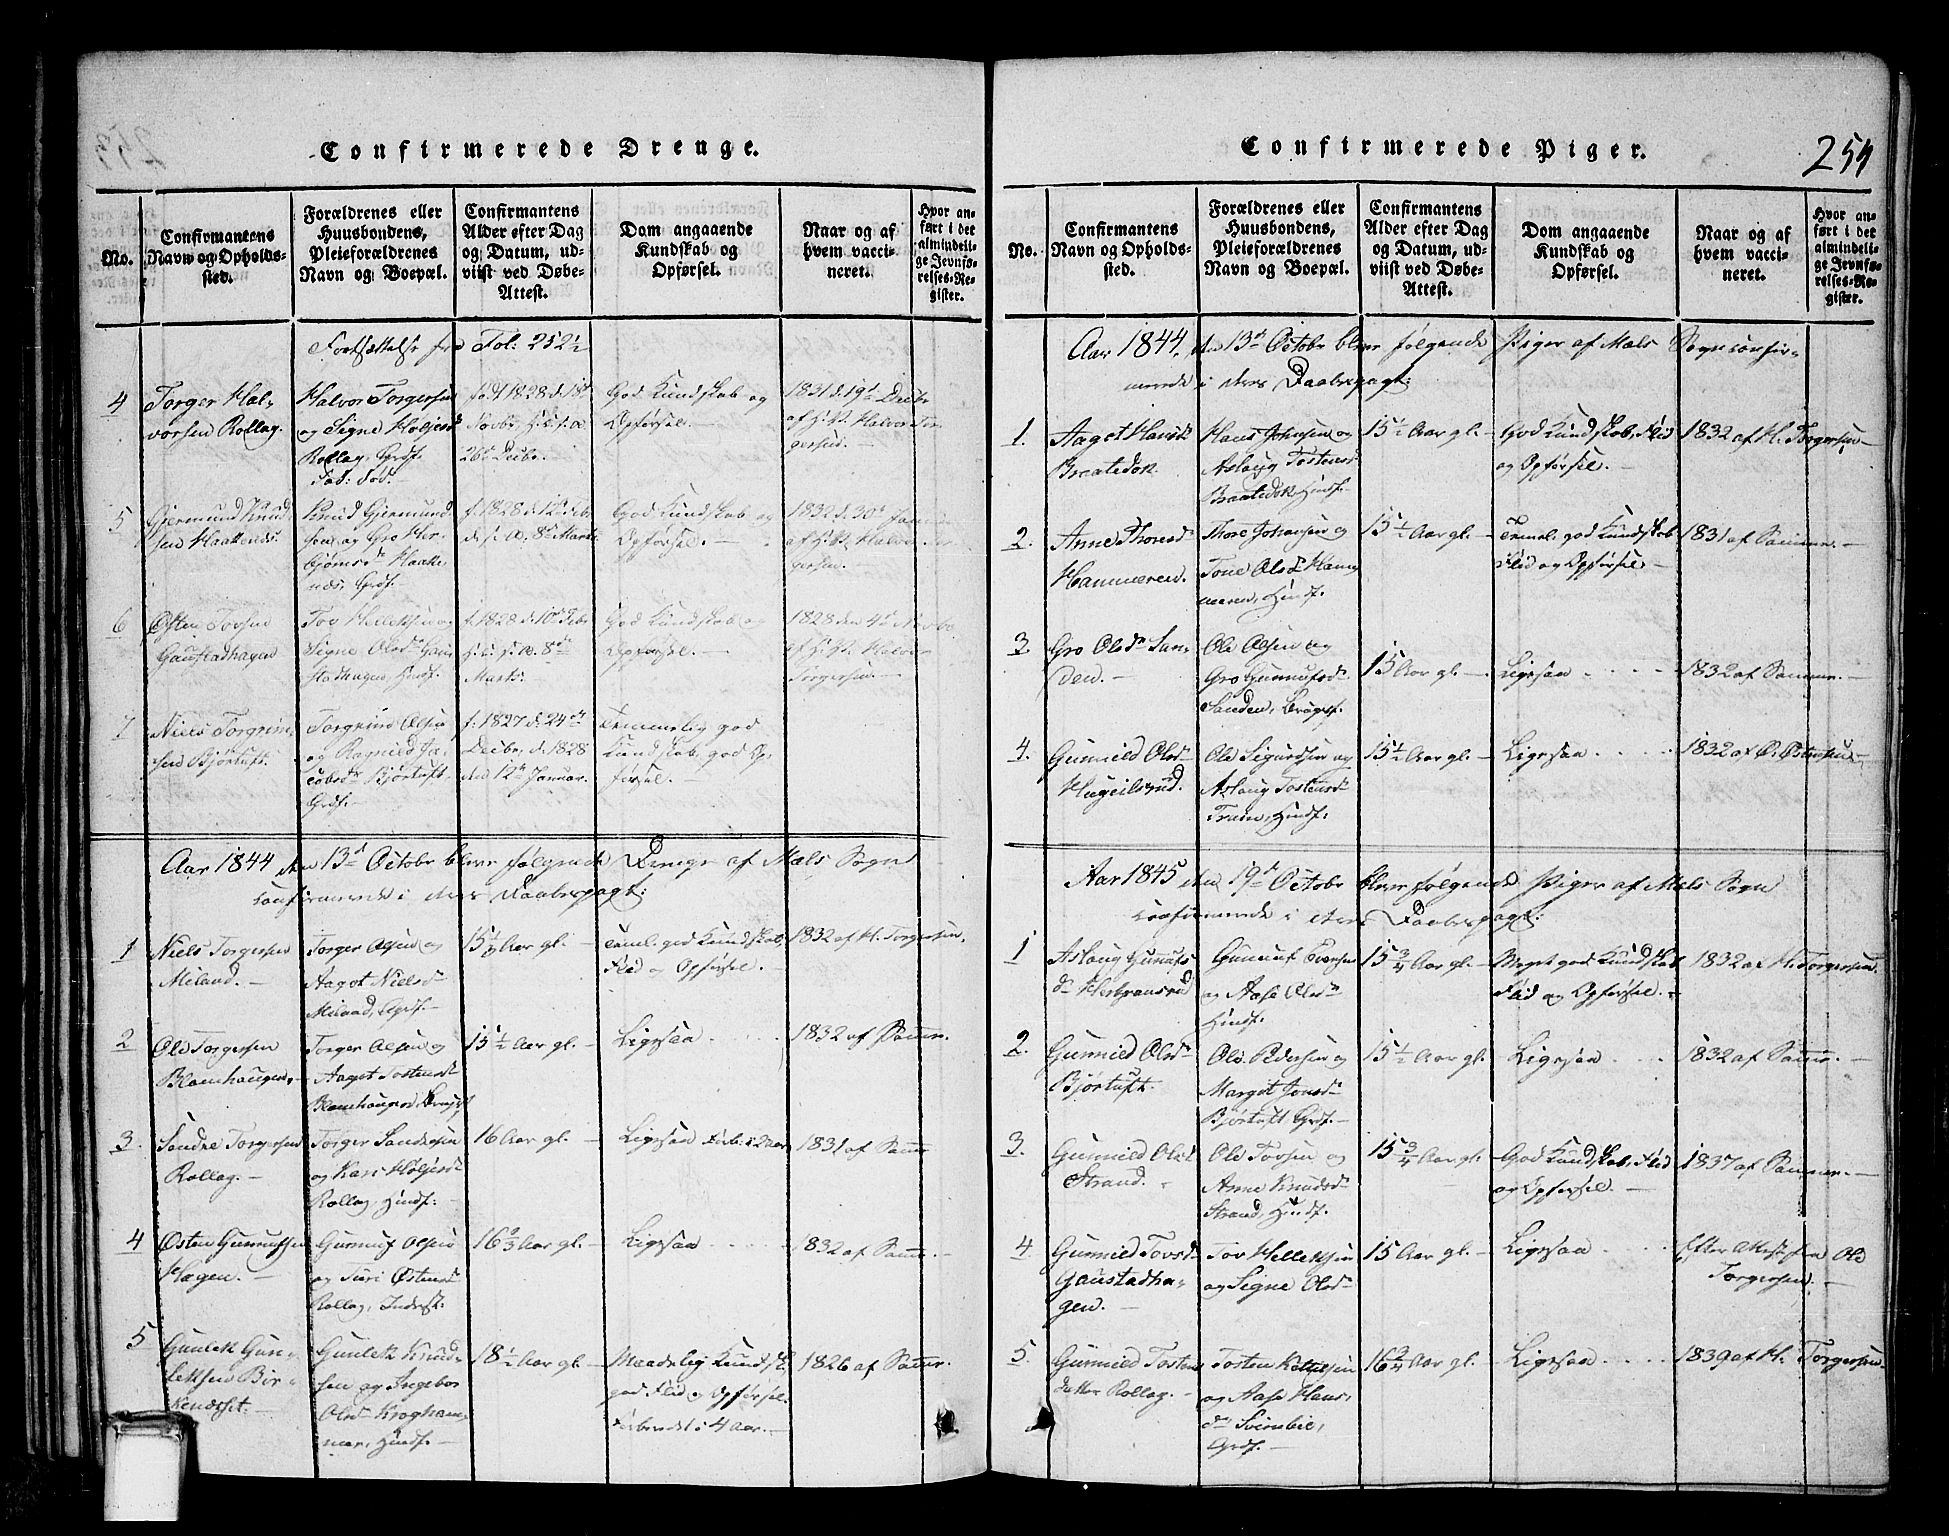 Confirmerede Drenge.
No.
Confirmantens
Navn og Opholds-
sted.
Forældrenes eller
Huusbondens,
Pleieforældrenes
Navn og Boepæl.
Confirmantens
Alder efter Dag
og Datum, ud-
viist ved Døbe-
Attest.
Dom angaaende
Kundskab og
Opførsel.
Naar og af
hvem vacci-
neret.
Hvor an-
ført i det
almindeli-
ge Jevnfø-
relses-Re-
gister.
Fortsættelse fra Fol: 252½
4
Torger Hal-
vorsen Rollag.
Halvor Torgersen
og Signe Høljesd
Rollag, Grdf.
Fad: død.
født 1828 d. 18d
Novbr.
26d Decbr.
God Kundskab og
Opførsel. —
1831 d. 19d Decbr
af Halvor Tor
gersen. —
5
Gjermund Knud-
sen Haakenæs.
Knud Gjermund
sen og Gro Her-
bjørnsd Haake-
næs, Grdf.
f. 1828 d. 12d Febr
8d Marts
God Kundskab og
Opførsel. —
1832 d. 30d Januar
af Halvor Tor
gersen. —
6
Østen Tovsen
Gaustadhagen
Tov Helleksen og
Signe Olsdr Gau-
stadhagen, Hmdf.
f. 1828 d. 10d Febr
8de
Marts.
God Kundskab og
Opførsel. —
1828 den 4d Novbr
af Halvor
Torgersen. —
7
Niels Torgrim-
sen Bjørtuft.
Torgrim Olsen
og Ragnild Ja-
cobsdr Bjørtuft.
Grdf. —
f. 1827 d. 24de
Decbr, d. 1828
den 12te Januar.
Temmelig god
Kundskab, god Op-
førsel. —
Aar 1844 den 13d Octobr blev følgende Drenge af Mæls Sogn
confirmerede i deres Daabspagt:
1
Niels Torgersen
Miland. —
Torger Olsen og
Aagot Nielsd
Miland, —
15 Aar gl. —
Teml. god Kundskab,
Flid og Opførsel. —
1832 af H. Torgersen.
2
Ole Torgersen
Blomhaugen, —
Torger Olsen og
Aagot Tostensd
Blomhaugen, Brugsf
15½ Aar gl.
Ligesaa
1832 af Samme. —
3.
Sondre Torgersen
Rollag. —
Torger Sondresen
og Kari Høljesd
Rollag, Hmdf:
16 Aar gl. —
Ligesaa
1831 af Samme
4
Østen Gunnufsen
Hagen. —
Gunnuf Olsen
og Turi Østensd
Rollag, Inderst.
16⅔ Aar gl.
Ligesaa
1832 af Samme. —
5
Gunlek Gun-
leksen Bir-
kenæset. —
Gunlek Knud-
sen og Ingebor
Olsd Krogham-
mer, Hmdf. —
18½ Aar gl. —
Maadelig Kundsk.
god Flid og Opførsel.
Forberedt i 4 Aar. —
1826 af Samme.
Confirmerede Piger.
254
No.
Confirmantens
Navn og Opholds-
sted.
Forældrenes eller
Huusbondens,
Pleieforældrenes
Navn og Boepæl.
Confirmantens
Alder efter Dag
og Datum, ud-
viist ved Døbe-
Attest.
Dom angaaende
Kundskab og
Opførsel.
Naar og af
hvem vacci-
neret.
Hvor an-
ført i det
almindeli-
ge Jevnfø-
relses-Re-
gister.
Aar 1844, den 13d Octobr blev følgende Piger af Mæls Sogn confir-
merede i deres Daabspagt:
1.
Aagot Hansd
Braatedok
Hans Johnsen og
Aslaug Tostensd
Braatedok Hmdf. —
15½ Aar gl. —
God Kundskab, Flid
og Opførsel. —
1832 af H. Torgersen —
2.
Anne Thoresd
Hammeren.
Thore Johansen og
Tone Olsd Ham-
meren, Hmdf.
15½ Aar gl. —
Temml. god Kundskab
Flid og Opførsel —
1831 af Samme. —
3.
Gro Olsdr San-
den. —
Ole Olsen og
Gro Gunnufsd
Sanden, Brugsf.
15 Aar gl. —
Ligesaa
1832 af Samme. —
4.
Gunnild Olsd
Hageilsrud.
Ole Sigurdsen og
Aslaug Tostensd
Traen, Hmdf:
15½ Aar gl. —
Ligesaa
1832 af O. Østensen —
Aar 1845 den 19d Octobr blev følgende Piger af Mæls Sogn
confirmerede i deres Daabspagt:
1
Aslaug Gunnufs
dr Herbransrud
Gunnuf Evensen
og Aase Olsdr
Hmdf.
15¾ Aar gl. —
Meget god Kundskab
Flid og Opførsel. —
1832 af H. Torgersen.
2.
Gunnild Olsdr
Bjørtuft.
Ole Pedersen og
Margit Jonsd
Bjørtuft Grdf.
15½ Aar gl. —
Ligesaa
1832 af Samme. —
3.
Gunnild Olsd
Strand. —
Ole Tovsen og
Anne Knudsdr
Strand, Hmdf.
15¾ Aar gl.
God Kundskab, Flid
og Opførsel. —
1837 af Samme. —
4.
Gunnild Tovsd
Gaustadha-
gen. —
Tov Helleksen
og Signe Olsdr
15 Aar gl. —
Ligesaa
Efter Attest fra Ole
Torgersen. —
5.
Gunnild Tostens
datter Rollag. —
Tosten Ketilsen
og Aase Hans-
dr Sveinbie,
Grdf. —
16¾ Aar gl.
Ligesaa
1839 af H. Torgersen.